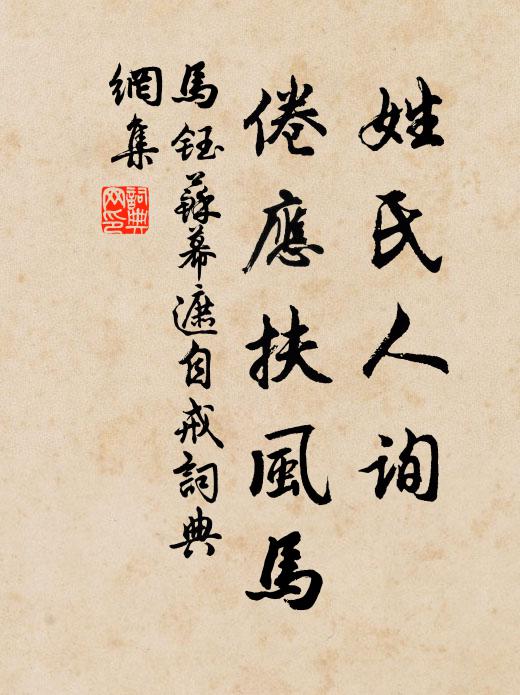 姓氏人詢
倦應扶風馬
馬鈺蘇幕遮自戒詞典
網集
詞典
网印